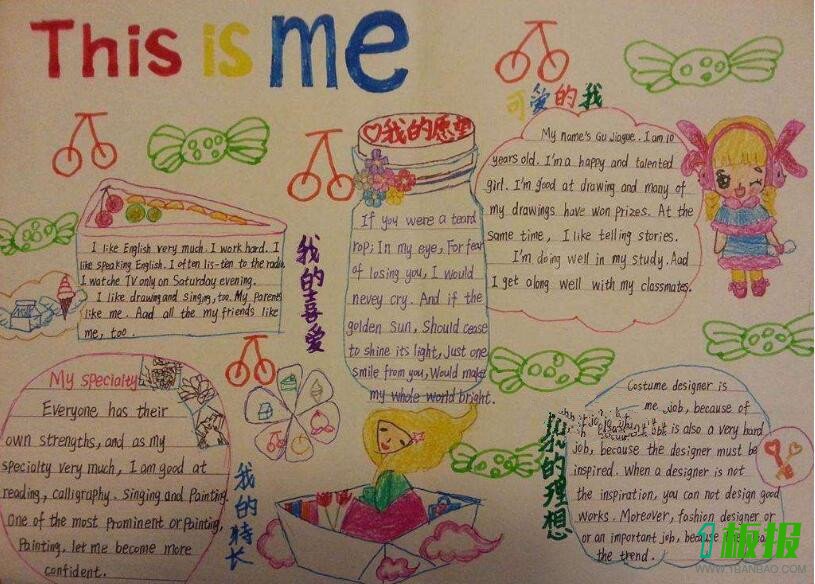 This is me
可爱的我
My name's Gu Jiague. I am 10
years old. I'm a happy and talented
girl. I'm good at drawing and many of
my drawings have won prizes. At the
same time, I like telling stories.
I'm doing well in my study. Aad
I get along well with my classmates.
♡我的愿望
If you were a teard
rop; In my eye, For fear
of losing you, I would
nevey cry. And if the
golden sun, Should cease
to shine its light, Just one
smile from you, Would make
my whole world bright.
我的喜爱
I like English very much. I work hard. I
like speaking English. I often lis-ten to the radio
I watche TV only on Saturday evening.
I like drawing and singing, to. My parents
like me. Aad all the my friends like
me, too.
My specialty
Everyone has their
own strengths, and as my
specialty very much, I am good at
reading, calligraphy. singing and Painting.
One of the most prominent or Painting,
Painting. let me become more
confident.
我的特长
我的理想
Costume designer is
me job, because of
is also a very hard
job, because the designer must be
inspired. When a designer is not
the inspiration, you can not design good
works. Moreover, fashion designer or
or an important job, because
the trend.
1板报
WWW.1BANBAO.COM